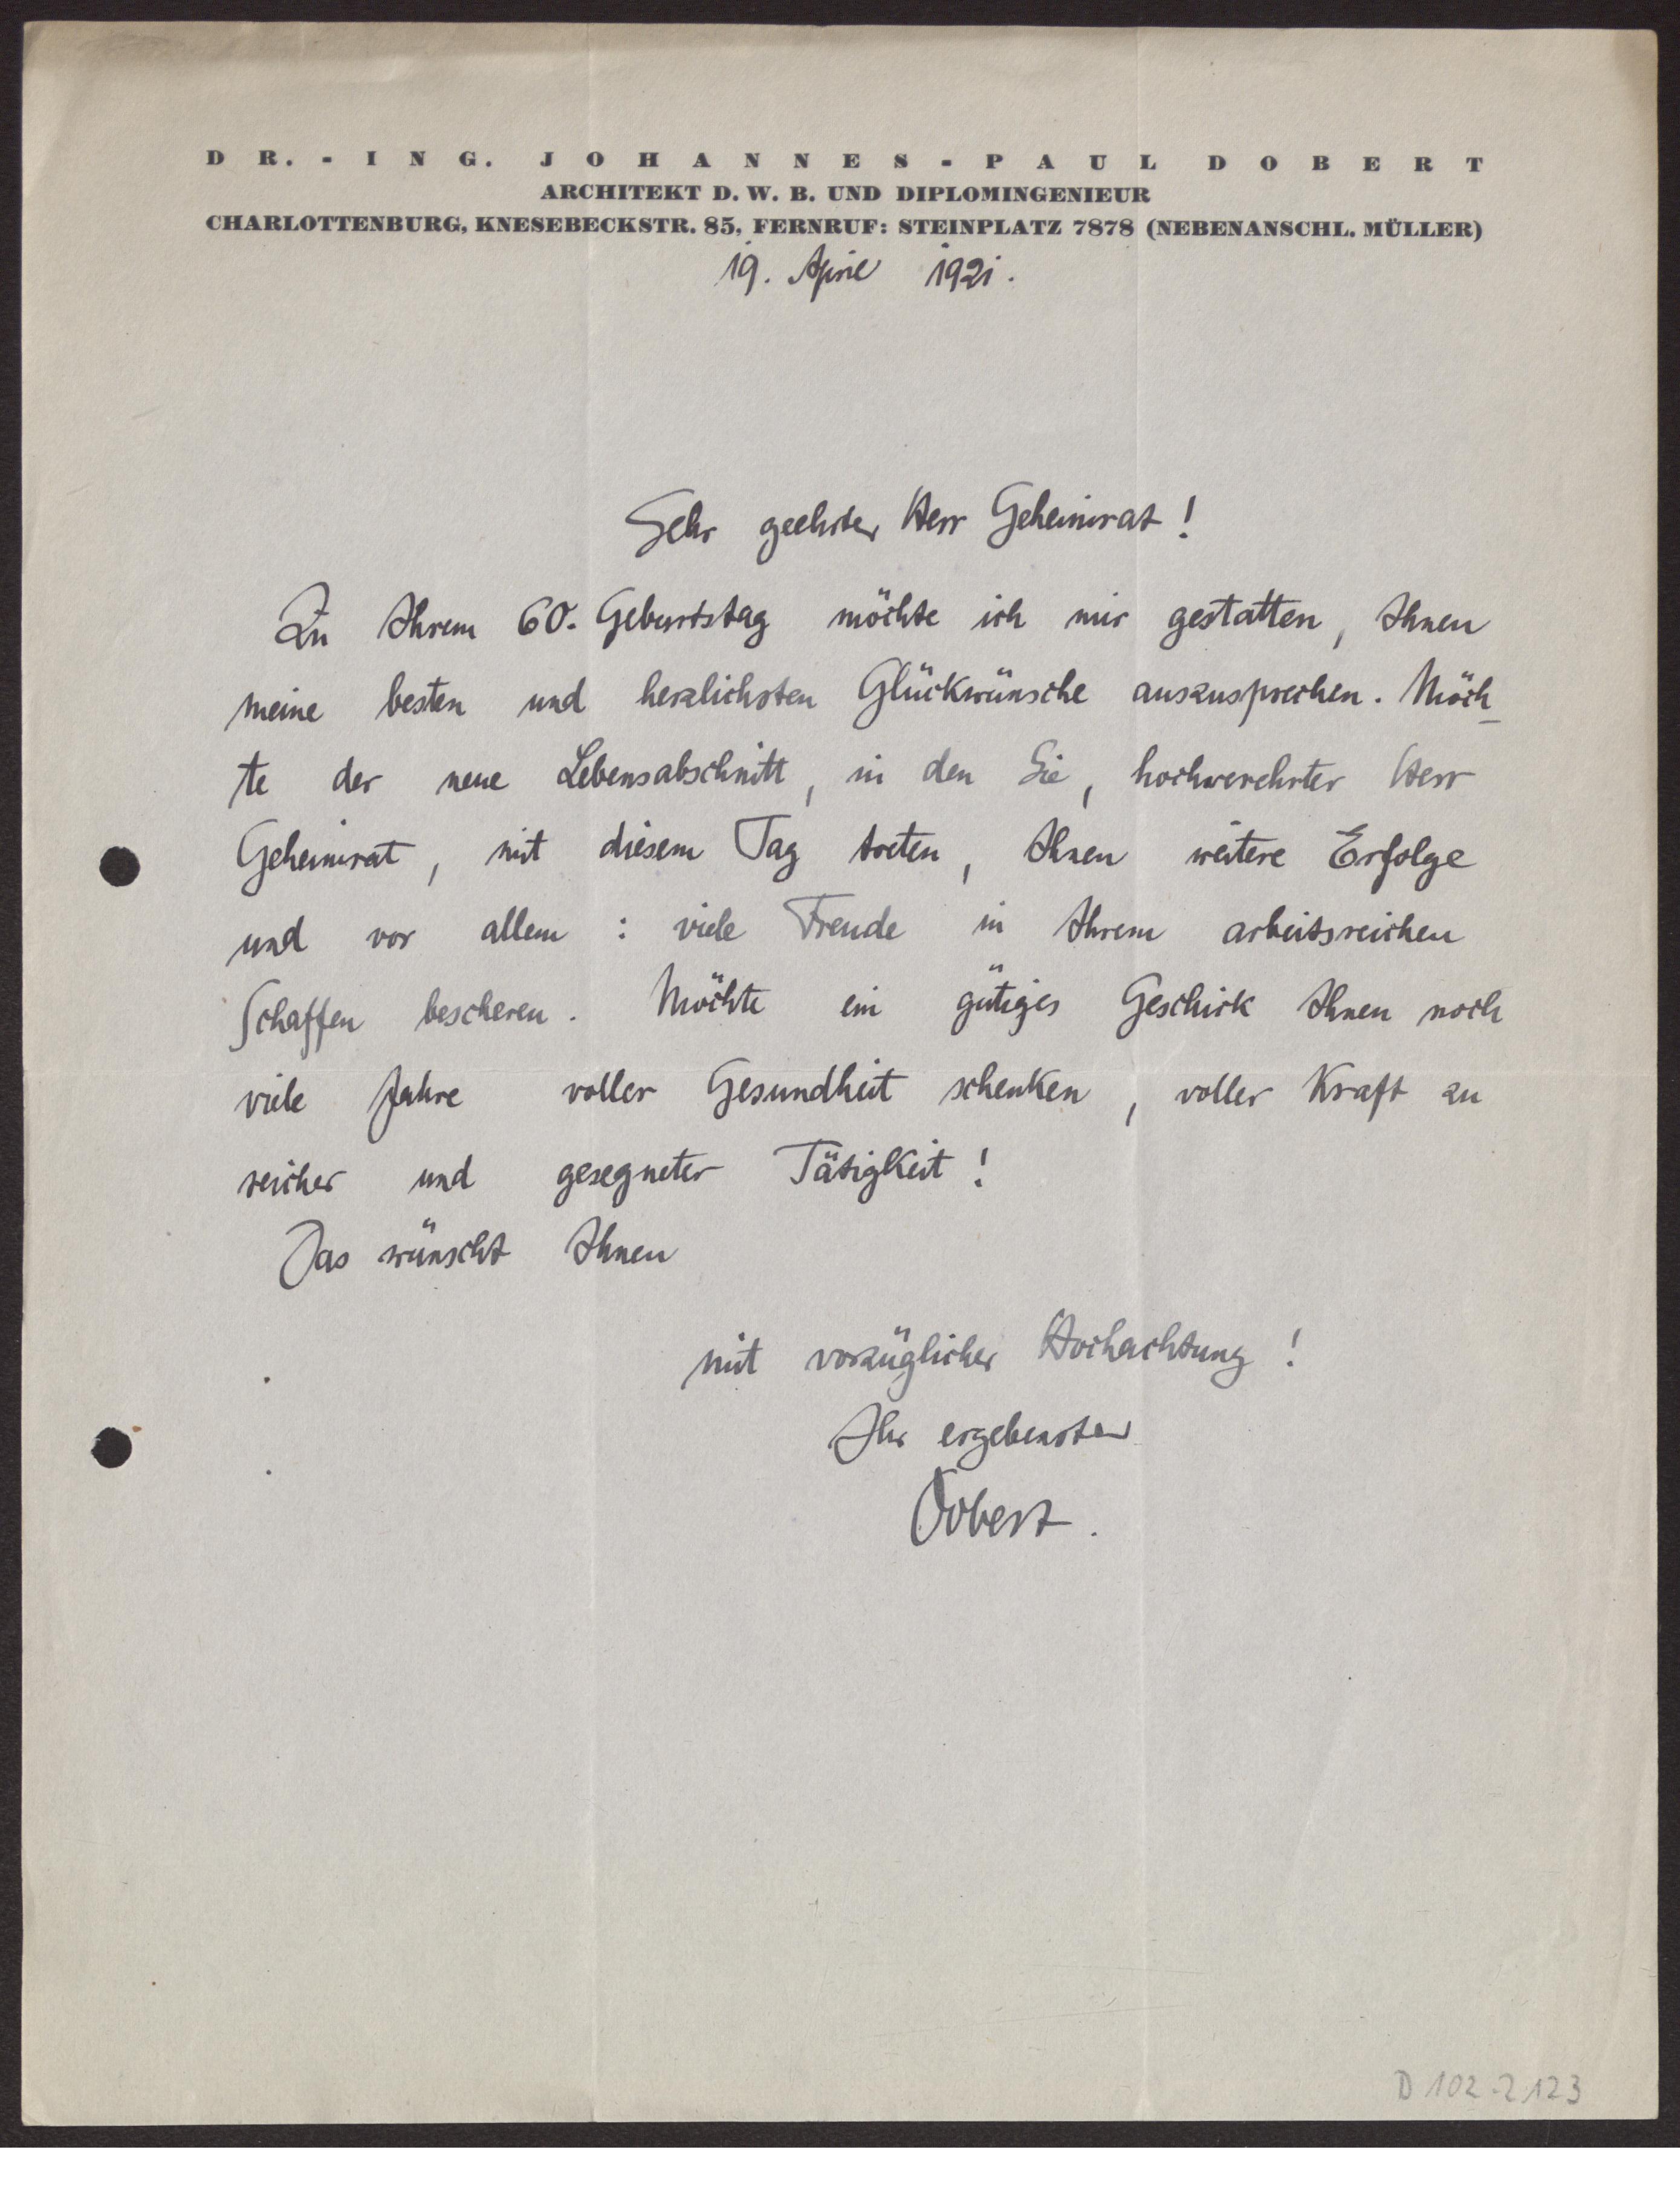 DR.-ING. JOHANNES-PAUL DOBERT
ARCHITEKT D. W. B. UND DIPLOMINGENIEUR
CHARLOTTENBURG, KNESEBECKSTR. 85, FERNRUF: STEINPLATZ 7878 (NEBENANSCHL. MÜLLER)
19. April 1921.
Sehr geehrter Herr Geheimrat!
Zu Ihrem 60. Geburtstag möchte ich mir gestatten, Ihnen
meine besten und herzlichsten Glückwünsche auszusprechen. Möch-
te der neue Lebensabschnitt, in den Sie, hochverehrter Herr
Geheimrat, mit diesem Tag treten, Ihnen weitere Erfolge
und vor allem: viele Freude in Ihrem arbeitsreichen
Schaffen bescheren. Möchte ein gütiges Geschick Ihnen noch
viele Jahre voller Gesundheit schenken, voller Kraft zu
reicher und gesegneter Tätigkeit!
Das wünscht Ihnen
mit vorzüglicher Hochachtung!
Ihr ergebenster
Dobert.
D 102-2,123